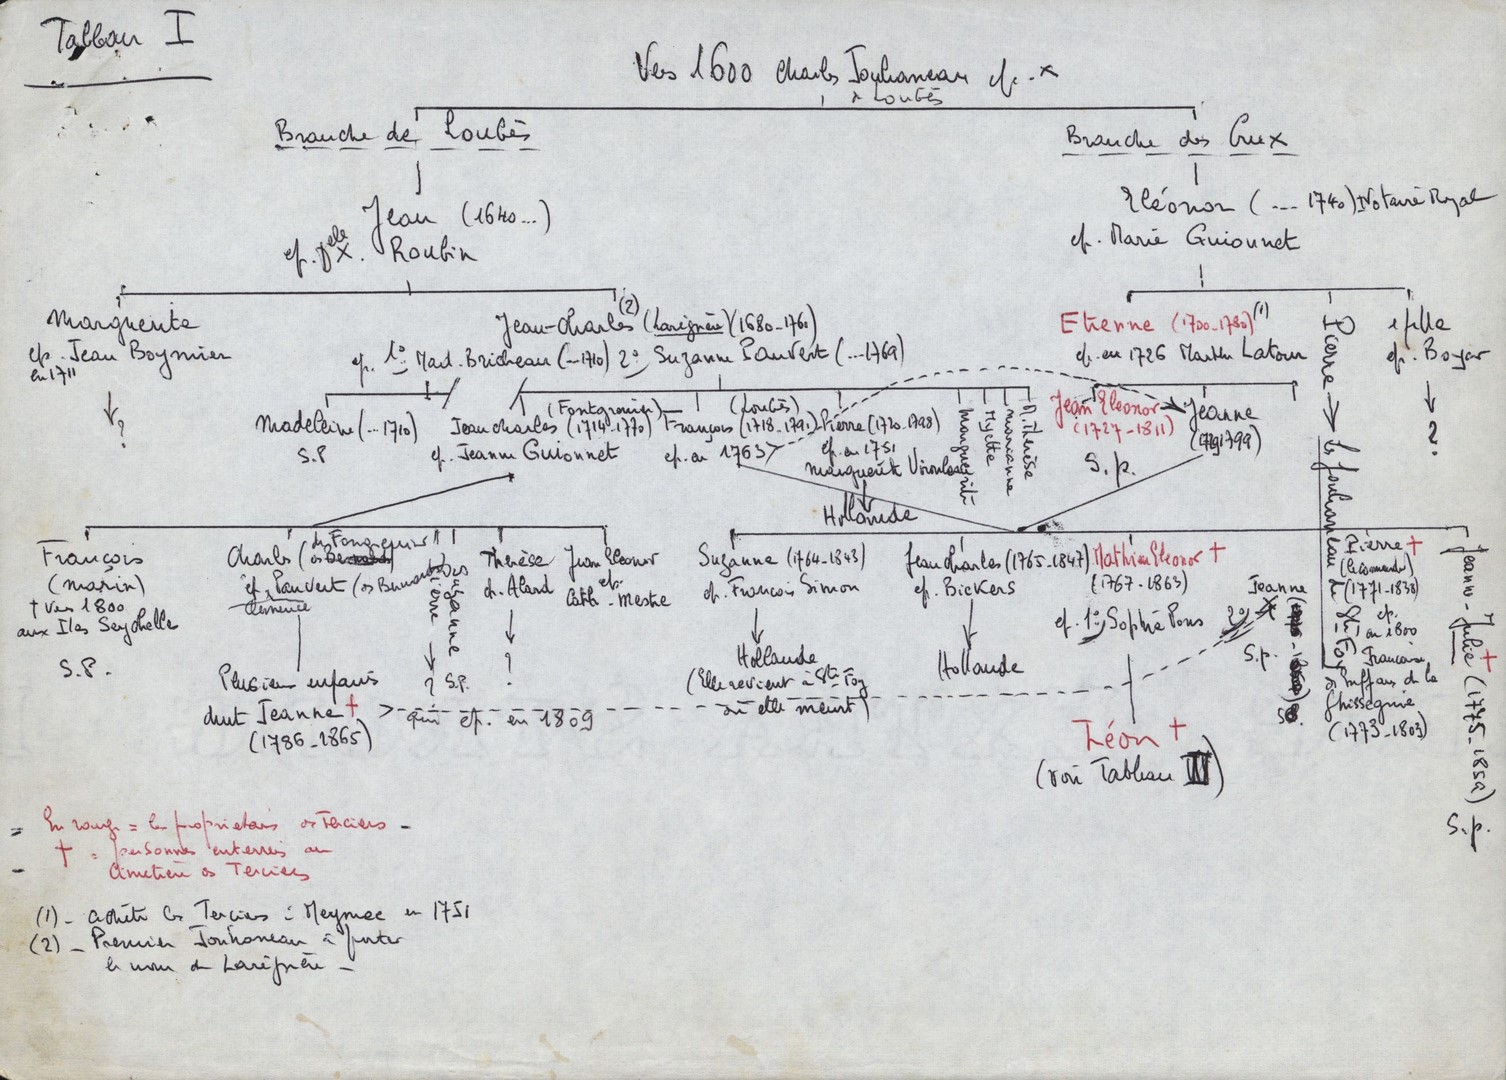 Tableau I
Vers 1600 Charles Jouhaneau ep. x
à Loubès
Branche de Loubès
Branche des Crux
Jean (1640...)
ep. Delle X. Roubin
Eléonor (... 1740) Notaire Royal
ep. Marie Guionnet
Marguerite
ep. Jean Boymier
en 1711
?
Jean-Charles (2) (Larégnère) (1680-1760)
ep. 1º Mad. Bricheau (...1710) 2º Suzanne Pauvert (...1769)
Etienne (1700-1780) (1)
ep. en 1726 Marthe Latour
Pierre → les Jouhaneau de Ste-Foy
1 fille
ep. Boyer
?
Madeleine (...1710)
S.P
(Fontgrenier)
Jean Charles (1714-1770)
ep. Jeanne Guionnet
(Loubès)
François (1718-1791)
ep. en 1763
Pierre (1720-1798)
ep. en 1751
Marguerite Viroulaud
Hollande
Marguerite
Myette
Marianne
M. Thérèse
Jean Eleonor
(1727-1811)
S.p.
Jeanne
(1799)
François
(marin)
† vers 1800
aux Iles Seychelles
S.P.
Charles (
ep. Pauvert
Clémence
Plusieurs enfants
dont Jeanne †
(1786-1865)
qui ep. en 1809
Pierre
?
Suzanne
S.P.
Thérèse
ep. Alard
?
Jean Eleonor
ep.
Cath. Mestre
Suzanne (1764-1843)
ep. François Simon
Hollande
(Elle revient à Ste Foy
où elle meurt)
Jean Charles (1765-1847)
ep. Bickers
Hollande
Mathieu Eleonor †
(1767-1863)
ep. 1º Sophie Pons 2º
Léon †
(voir Tableau II)
Jeanne
S.p.
Pierre †
(1771-1838)
ep.
en 1800
Françoise
(1773-1803)
Jeanne-Julie † (1775-1852)
S.p.
En rouge = les propriétaires des Terciers -
† = personnes enterrées au
Cimetière des Terciers
(1) - achète les Terciers à Meymac en 1751
(2) - Premier Jouhaneau à porter
le nom de Larégnère -